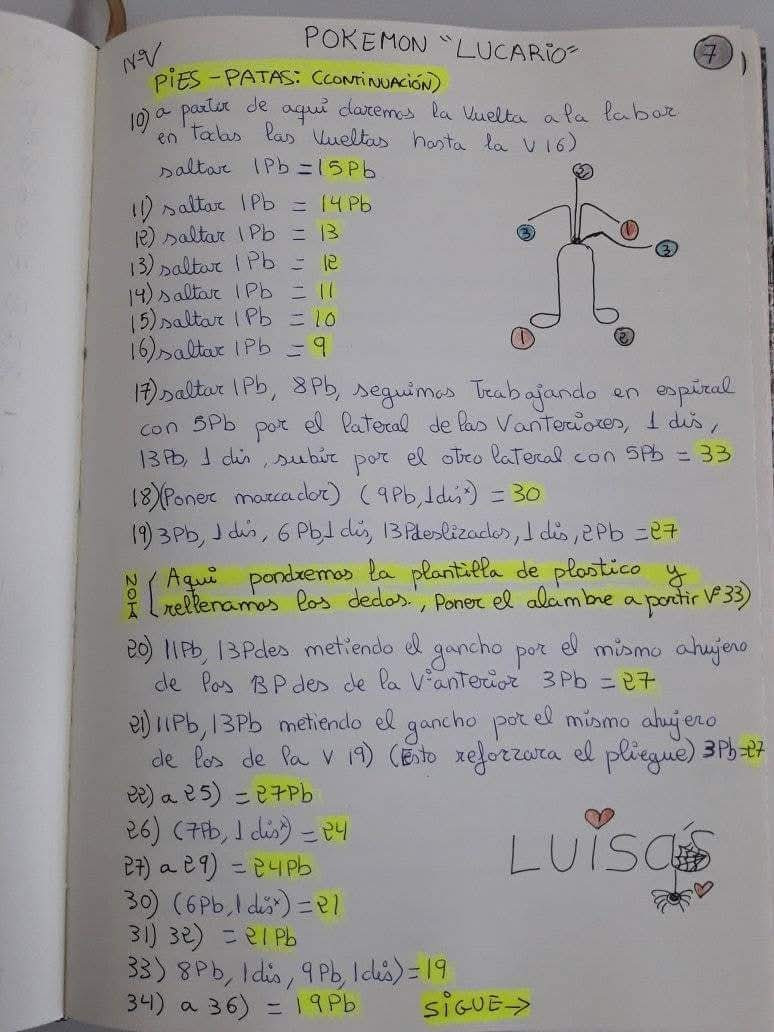 POKEMON "LUCARIO"
7
PIES - PATAS: (CONTINUACIÓN)
10) a partir de aqui daremos la vuelta a la labor
en todas las vueltas hasta la V 16)
saltar 1Pb = 15Pb
11) saltar 1Pb = 14Pb
12) saltar 1Pb = 13
13) saltar 1Pb = 12
14) saltar 1Pb = 11
15) saltar 1Pb = 10
16) saltar 1Pb = 9
2
3
1
3
1
2
17) saltar 1Pb, 8Pb, seguimos Trabajando en espiral
con 5Pb por el lateral de las V anteriores, 1 dis,
13Pb, 1 dis, subir por el otro lateral con 5Pb = 33
18) (Poner marcador) (9Pb, 1dis*) = 30
19) 3Pb, 1 dis, 6Pb, 1 dis, 13Pdeslizados, 1 dis, 2Pb = 27
NOTA
(Aqui pondremos la plantilla de plastico y
rellenamos los dedos, Poner el alambre a partir Vº33)
20) 11Pb, 13Pdes metiendo el gancho por el mismo ahujero
de los 13Pdes de la Vº anterior 3Pb = 27
21) 11Pb, 13Pb metiendo el gancho por el mismo ahujero
de los de la V 19) (Esto reforzara el pliegue) 3Pb = 27
22) a 25) = 27Pb
26) (7Pb, 1 dis*) = 24
27) a 29) = 24Pb
30) (6Pb, 1dis*) = 21
31) 32) = 21Pb
33) 8Pb, 1dis, 9Pb, 1dis) = 19
34) a 36) = 19Pb SIGUE→
LUISA'S